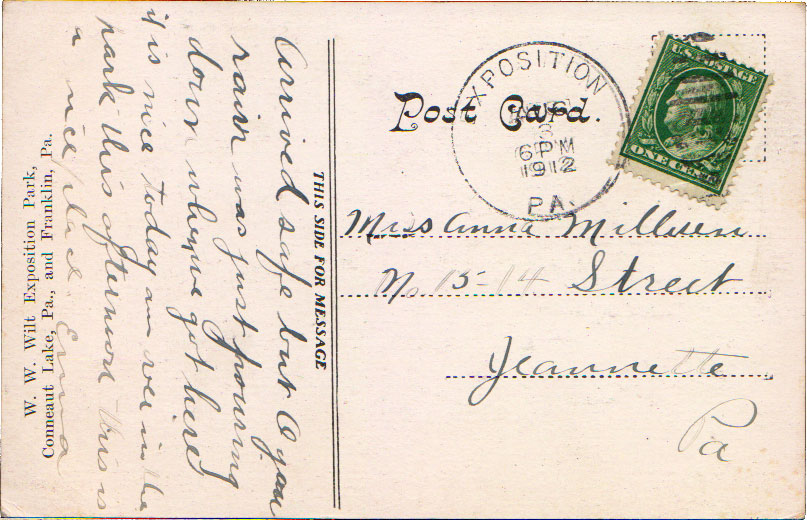 Arrived safe but O you
rain was just pouring
down when we got here
it is nice today am over in the
park this afternoon this is
a nice place. Erma
W. W. Wilt Exposition Park,
Conneaut Lake, Pa., and Franklin, Pa.
THIS SIDE FOR MESSAGE
Post Card.
EXPOSITION
3
6 PM
1912
PA.
U.S. POSTAGE
ONE CENT
Miss Anna
No 15-14 Street
Jeannette
Pa